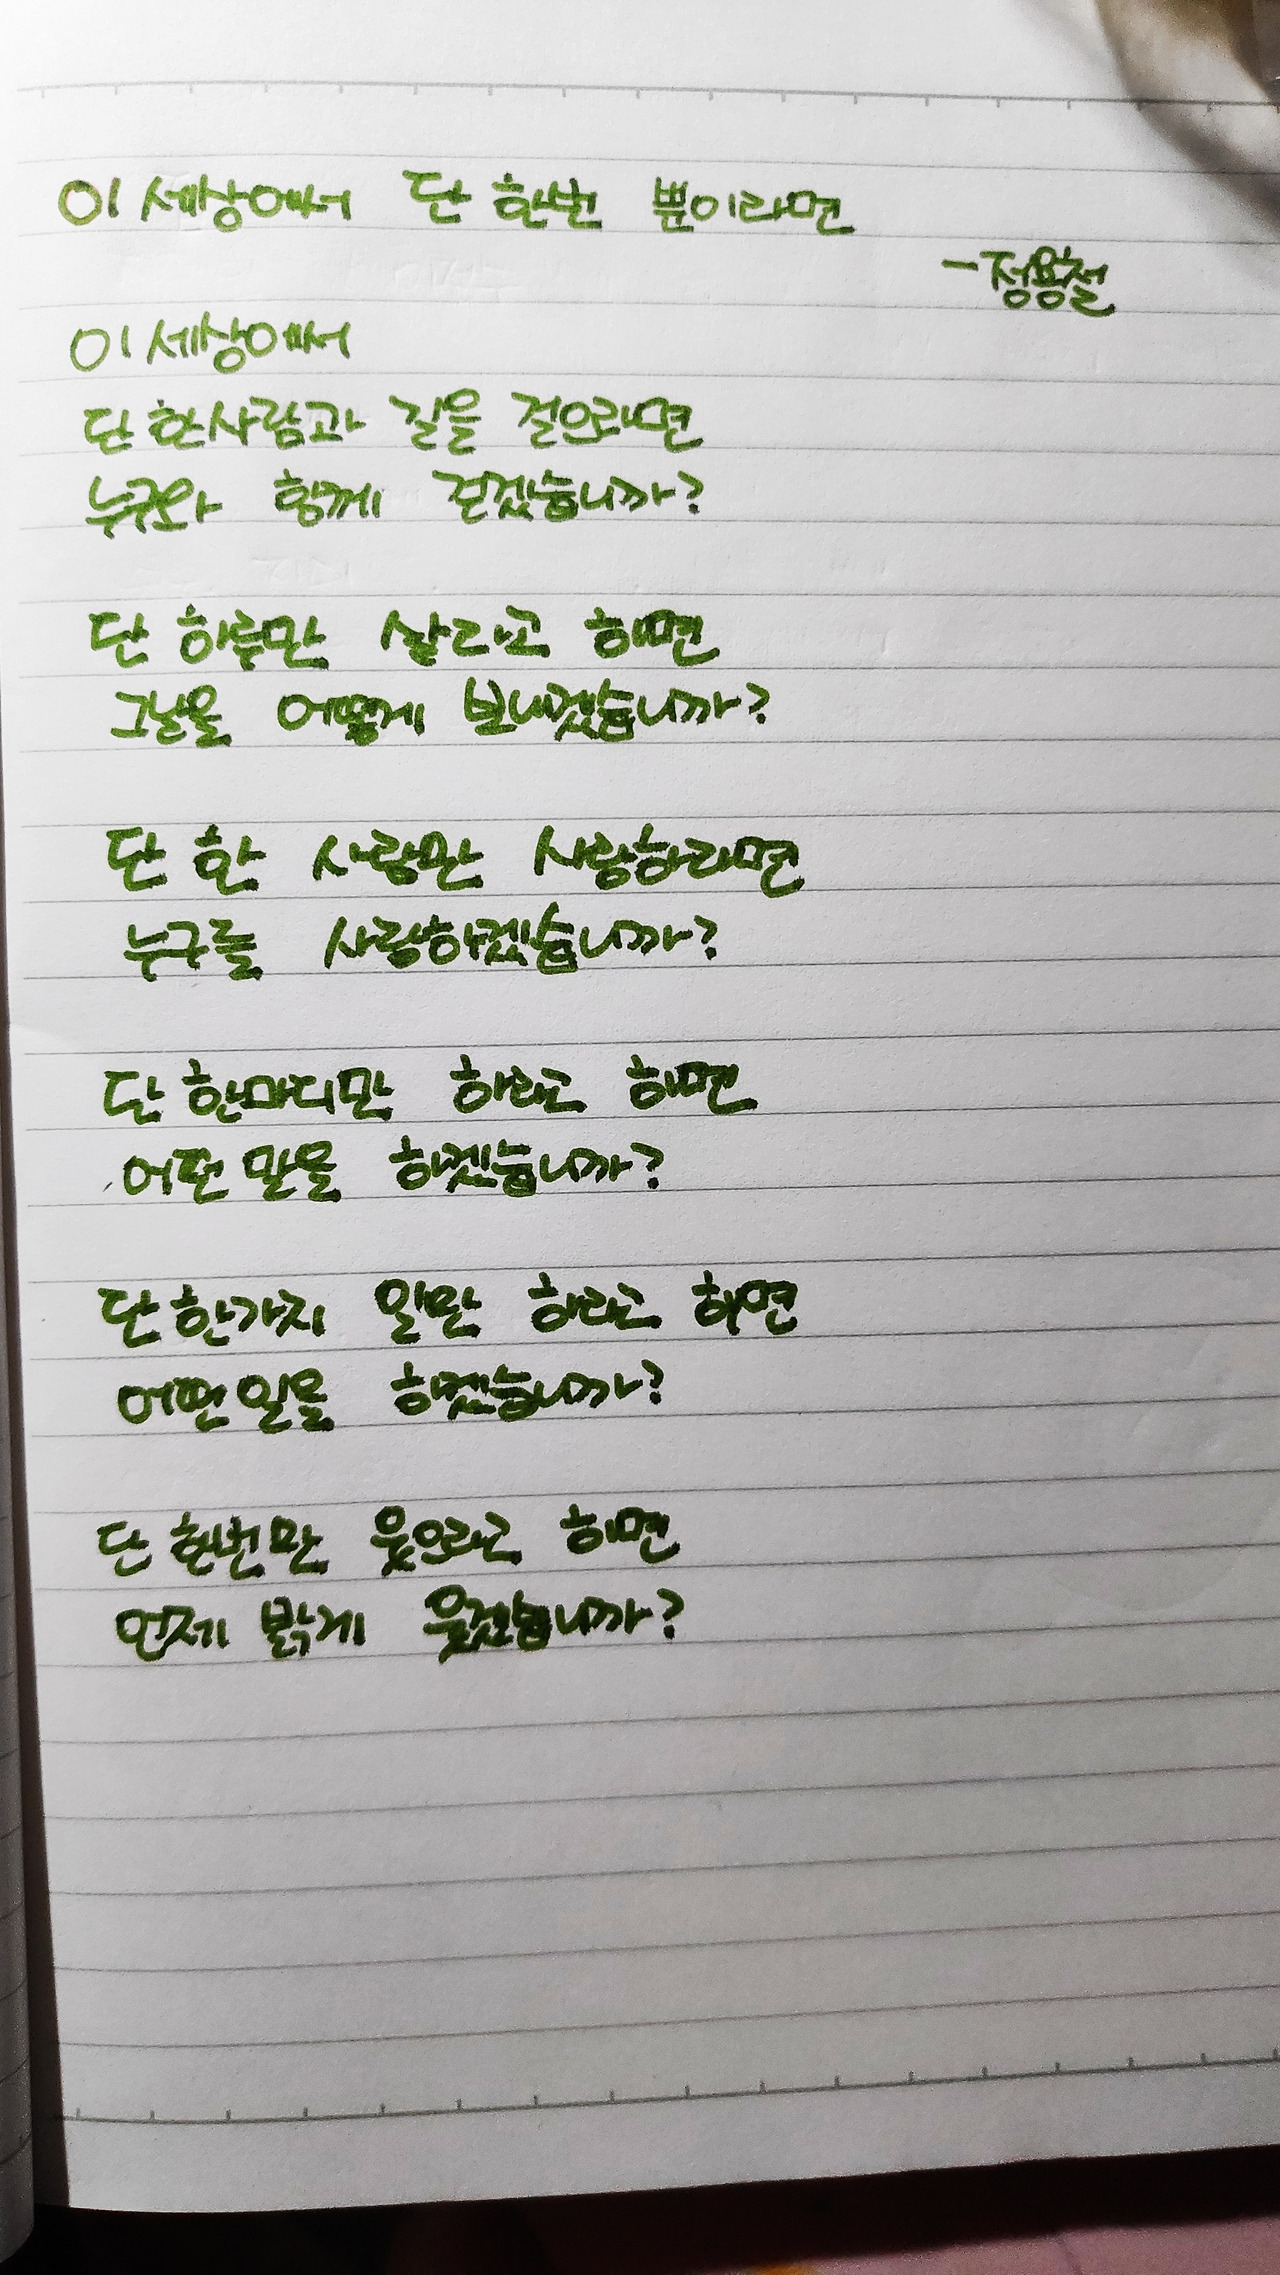 이 세상에서 단 한번 뿐이라면
-정용철
이 세상에서
단 한사람과 길을 걸으라면
누구와 함께 걷겠습니까?
단 하루만 살라고 하면
그날을 어떻게 보내겠습니까?
단 한 사람만 사랑하라면
누구를 사랑하겠습니까?
단 한마디만 하라고 하면
어떤 말을 하겠습니까?
단 한가지 일만 하라고 하면
어떤일을 하겠습니까?
단 한번만 웃으라고 하면
언제 밝게 웃겠습니까?